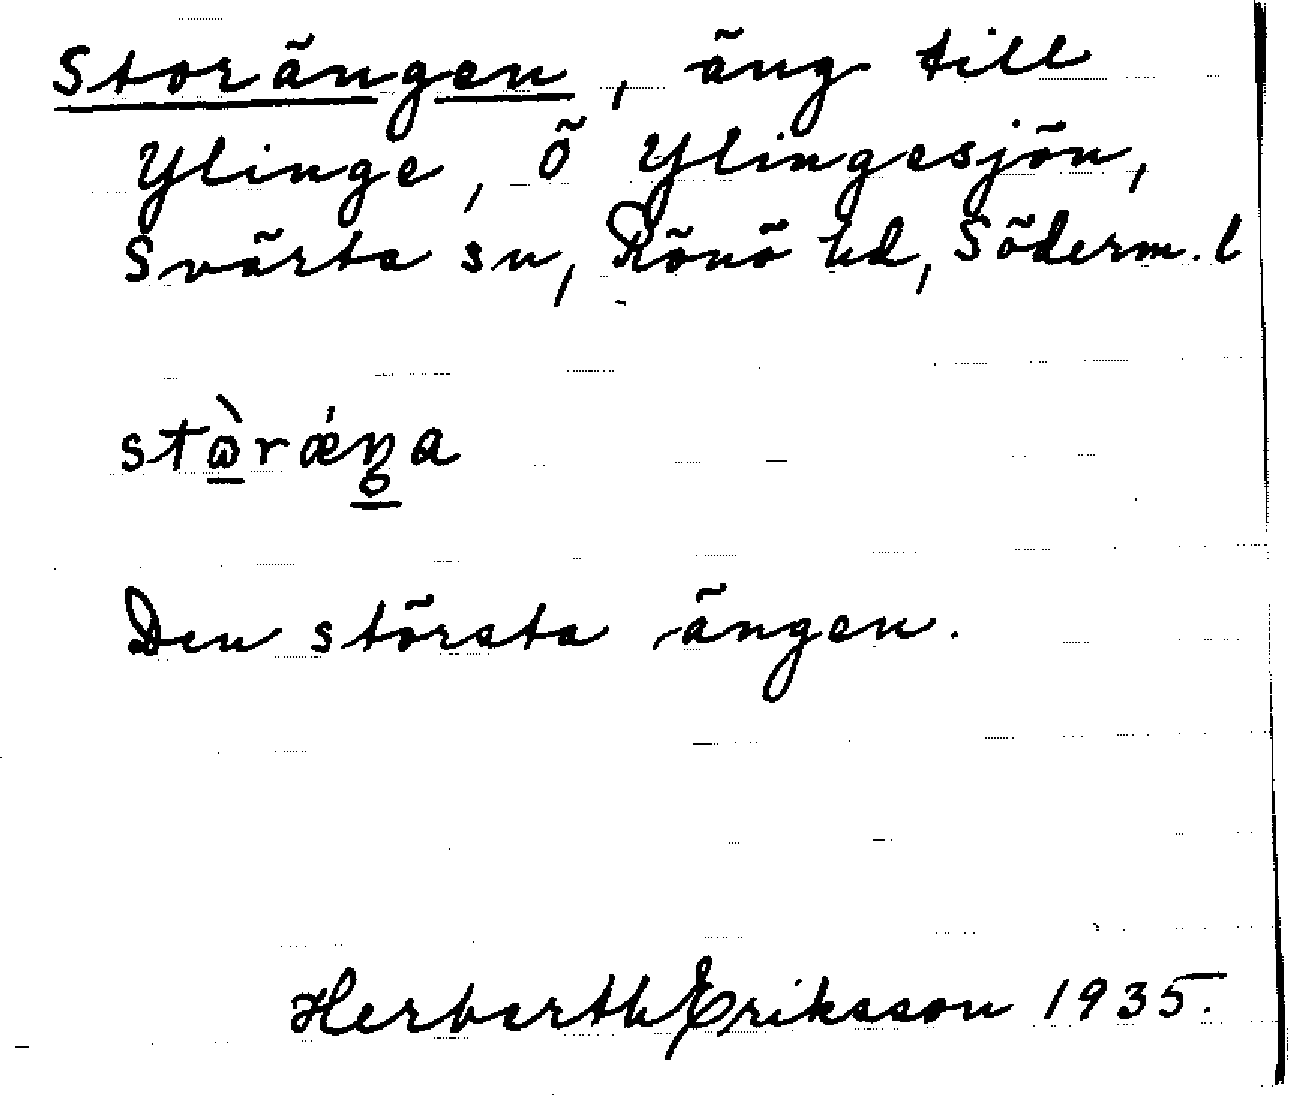 Storängen, äng till
Ylinge, Ö Ylingesjön,
Svärta sn, Rönö hd, Söderm. l
stὼrǽŋa
Den största ängen.
Herbarth Eriksson 1935.